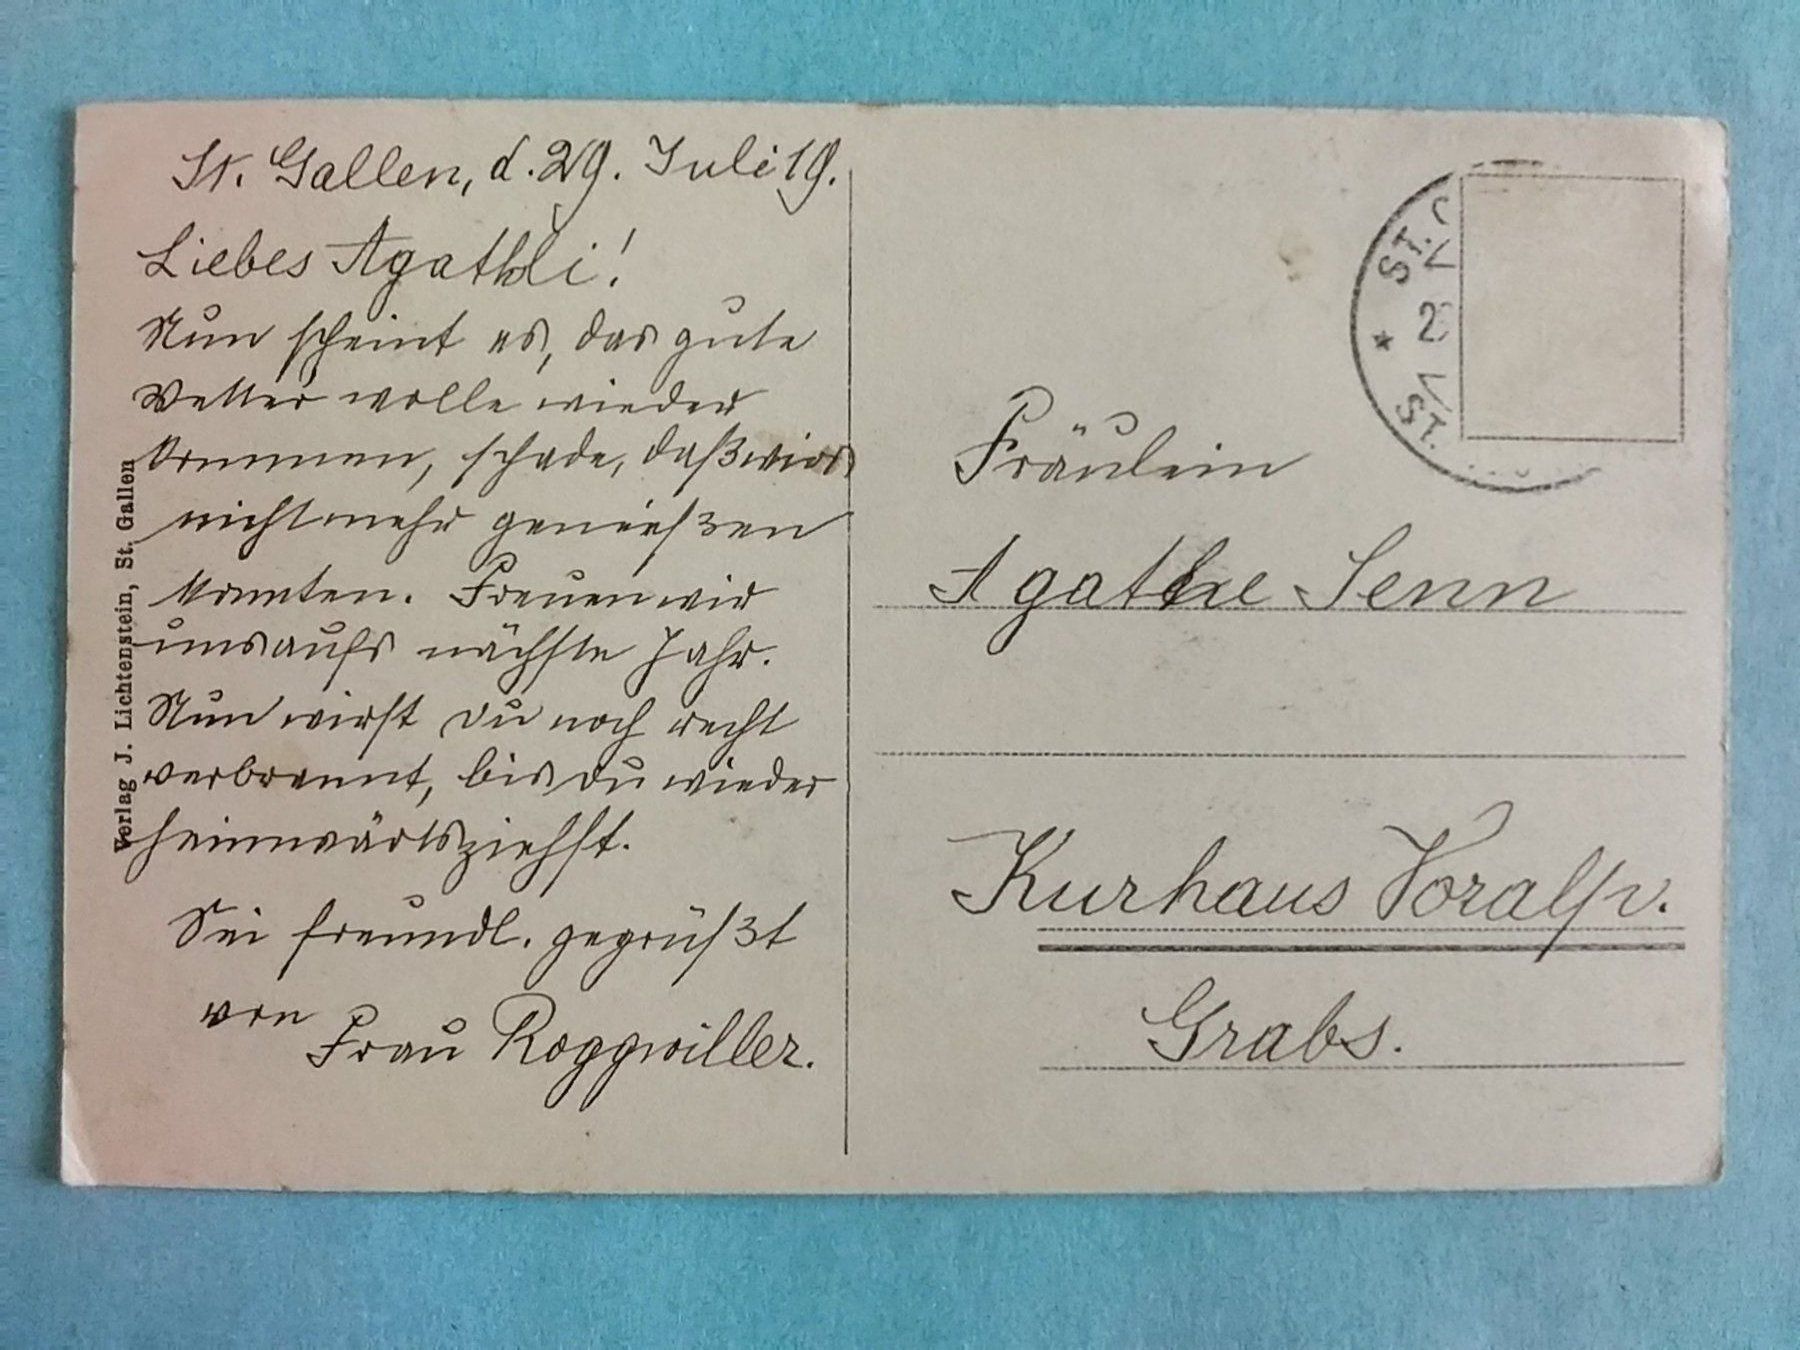 St. Gallen, d. 29. Juli 19.
Liebes Agathli!
Nun scheint es, das gute
Wetter wolle wieder
kommen, schade, daß wirs
nicht mehr genießen
konnten. Freuen wir
uns aufs nächste Jahr.
Nun wirst du noch recht
verbrannt, bis du wieder
heimwärts ziehst.
Sei freundl. gegrüßt
von
Frau Roggwiller.
Verlag J. Lichtenstein, St. Gallen
ST.
2
ST.
Fräulein
Agathe Senn
Kurhaus Voralp.
Grabs.